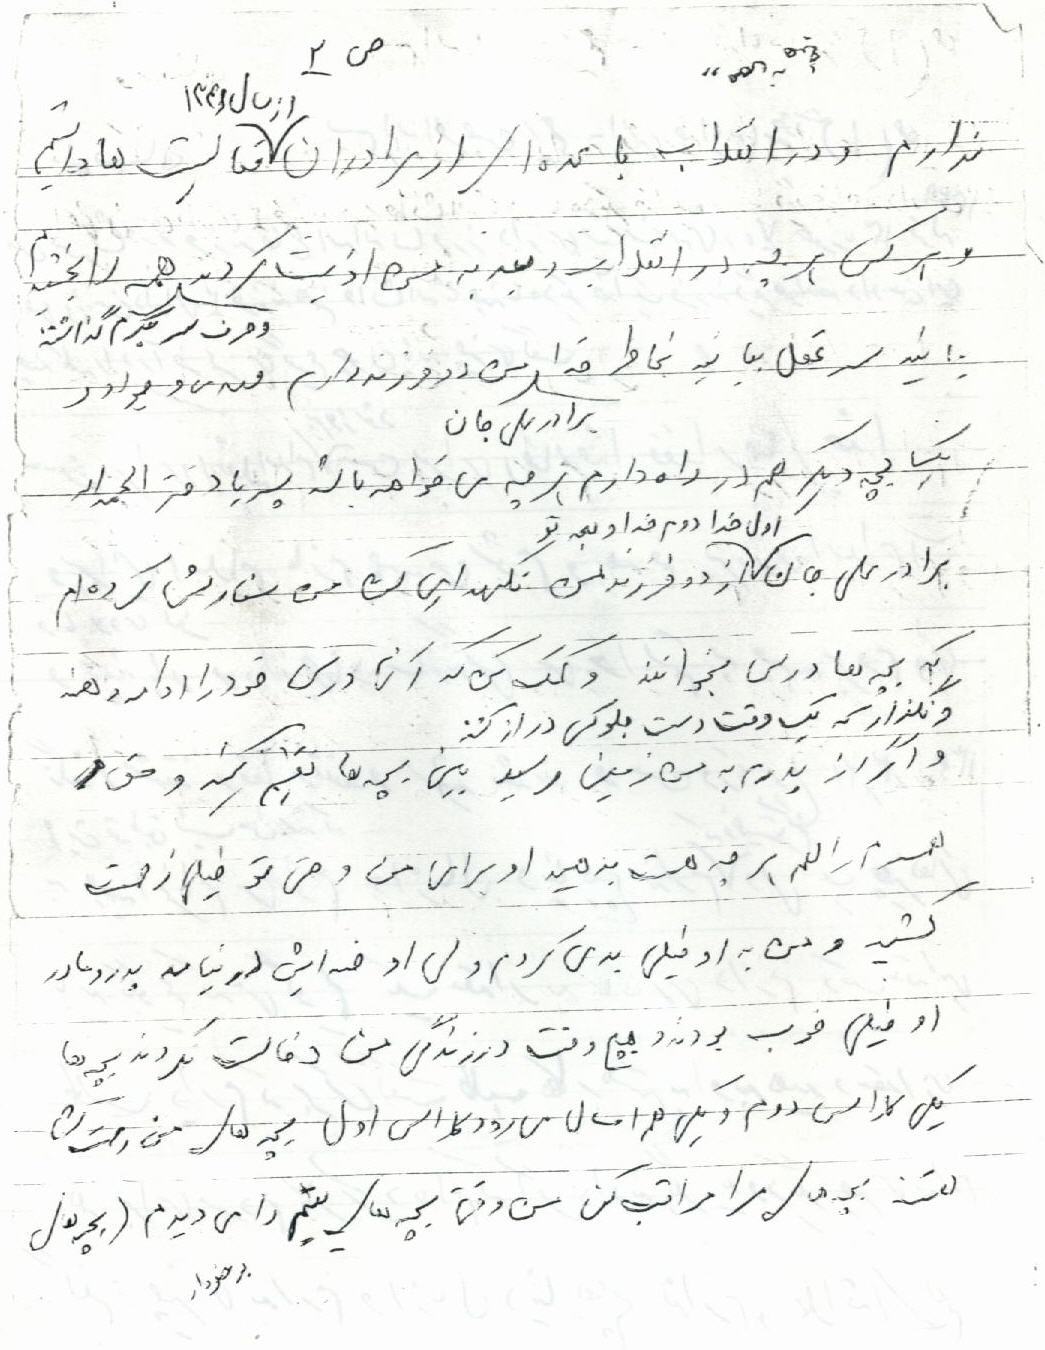 ص ۲
از سال ۱۳۴۶
ندارم و در انقلاب با عده ای از برادران فعالیت ها داشتیم
و هر کس هر چه در انقلاب و بعد به من اذیت کردند همه را بخشیدم
و حرف سر جگرم گذاشتند
به خاطر خدا من دو فرزند دارم مهدی و جواد و
برادر علی جان
یک بچه دیگر هم در راه دارم هر چه می خواهد باشد پسر یا دختر الحمدلله
اول خدا دوم خدا و بعد تو
برادر علی جان از دو فرزند من نگهداری کن من سفارش کرده ام
که بچه ها درس بخوانند و کمک کن که آنها درس خود را ادامه دهند
و نگذار که یک وقت دست جلو کسی دراز کنند
و اگر از پدرم به من زمین رسید بین بچه ها تقسیم کنید و حق
همسرم را هم هر چه هست بدهید او برای من و حق تو خیلی زحمت
کشید و من به او خیلی بدی کردم ولی او خدایش در نیامد پدر و مادر
او خیلی خوب بودند و هیچ وقت در زندگی من دخالت نکردند بچه ها
یکی کلاس دوم و یکی هم امسال می رود کلاس اول بچه های من
هستند بچه های مرا مراقبت کن من وقتی بچه های یتیم را می دیدم (بچه های